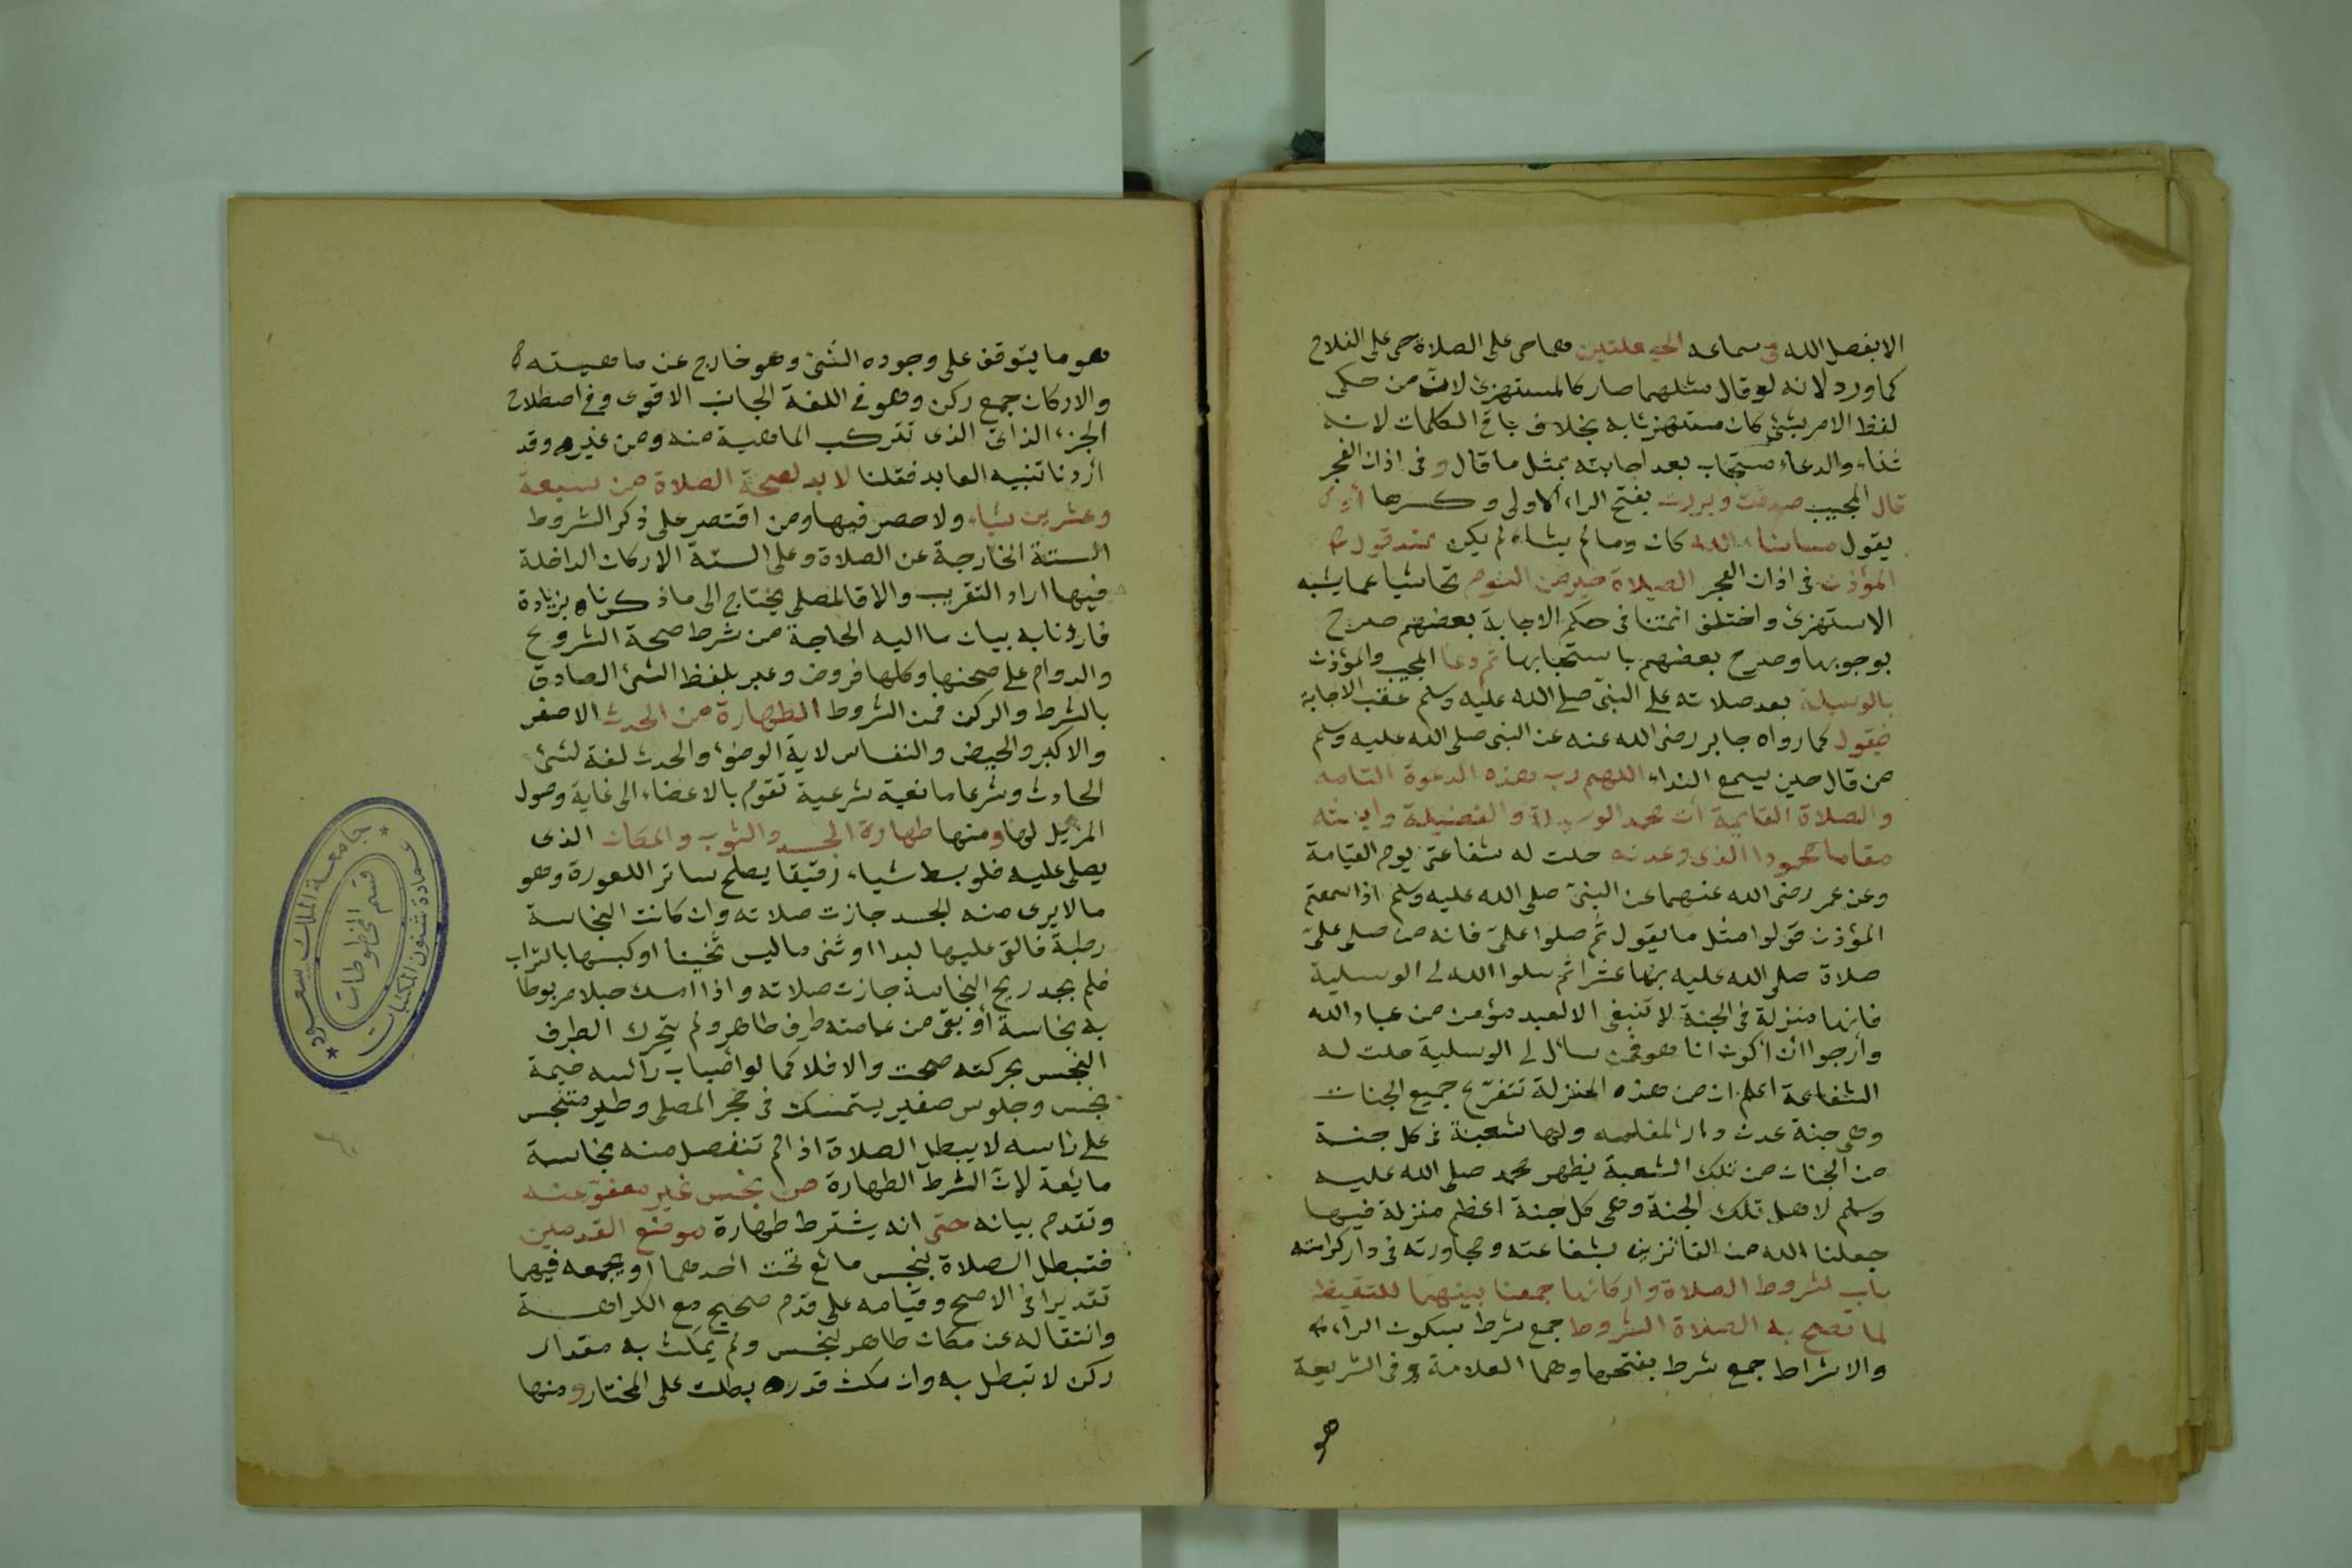 الا بفضل الله في سماعه الحيعلتين هما حى على الصلاة حى على الفلاح
كما ورد لانه لو قال مثلهما صار كالمستهزئ لان من حكى
لفظ الامر بشئ كان مستهزئا به بخلاف باقي الكلمات لانه
ثناء والدعاء مستجاب بعد اجابته بمثل ما قال وفى اذان الفجر
قال المجيب صدقت وبررت بفتح الراء الاولى وكسرها أو
يقول ما شاء الله كان وما لم يشاء لم يكن عند قول
المؤذن فى اذان الفجر الصلاة خير من النوم تحاشيا عما يشبه
الاستهزئ واختلف ائمتنا فى حكم الاجابة بعضهم صرح
بوجوبها وصرح بعضهم باستحبابها ثم دعا المجيب والمؤذن
بالوسيلة بعد صلاته على النبى صلى الله عليه وسلم عقب الاجابة
فيقول كما رواه جابر رضى الله عنه عن النبى صلى الله عليه وسلم
من قال حين يسمع النداء اللهم رب هذه الدعوة التامه
والصلاة القايمة ات محمد الوسيلة والفضيلة وابعثه
مقاما محمودا الذى وعدته حلت له شفاعتى يوم القيامة
وعن عمر رضى الله عنهما عن النبى صلى الله عليه وسلم اذا سمعتم
المؤذن قولوا مثل ما يقول ثم صلوا علىّ فانه من صلى علىّ
صلاة صلى الله عليه بها عشرا ثم سلوا الله لى الوسيلة
فانها منزلة فى الجنة لا تنبغى الا لعبد مؤمن من عباد الله
وأرجوا ان أكون انا هو فمن سأل لى الوسيلة حلت له
الشفاعة اعلم ان من هذه المنزلة تتفرّع جميع الجنات
وهى جنة عدن دار المقامه ولها شعبة فى كل جنة
من الجنات من تلك الشعبة يظهر محمد صلى الله عليه
وسلم لاهل تلك الجنة وهى كل جنة اعظم منزلة فيها
جعلنا الله من الفائزين بشفاعته ومجاورته فى دار كرامته
باب لشروط الصلاة واركانها جمعنا بينهما للتيقظ
لما تصح به الصلاة الشروط جمع شرط بسكون الراء
والاشراط جمع شرط بفتحها وهما العلامة وفى الشريعة
هو
هو ما يتوقف على وجوده الشئ وهو خارج عن ماهيته
والاركان جمع ركن وهو فى اللغة الجانب الاقوى وفى اصطلاح
الجزء الذاتى الذى تتركب الماهية منه ومن غيره وقد
اردنا تنبيه العابد فقلنا لا بد لصحة الصلاة من سبعة
وعشرين شياء ولا حصر فيها ومن اقتصر على ذكر الشروط
الستة الخارجة عن الصلاة وعلى الستة الاركان الداخلة
فيها اراد التقريب والا فالمصلى يحتاج الى ما ذكرناه بزيادة
فاردنا به بيان ما اليه الحاجة من شرط صحة الشروع
والدوام على صحتها وكلها فروض وعبر بلفظ الشئ الصادق
بالشرط والركن فمن الشروط الطهارة من الحدث الاصغر
والاكبر والحيض والنفاس لاية الوضؤ والحدث لغة لشئ
الحادث وشرعا مانعية شرعية تقوم بالاعضاء الى غاية وصول
المزيل لها ومنها طهارة الجسد والثوب والمكان الذى
يصلى عليه فلو بسط شياء رقيقا يصلح ساتر اللعورة وهو
ما لا يرى منه الجسد جازت صلاته وان كانت النجاسة
رطبة فالقى عليها لبدا او ثنى ما ليس ثخينا او كبسها بالتراب
فلم يجد ريح النجاسة جازت صلاته واذا امسك حبلا مربوطا
به نجاسة أو بقى من عمامته طرف طاهر ولم يتحرك الطرف
النجس بحركته صحت والا فلا كما لو أصاب رأسه خيمة
نجس وجلوس صغير يستمسك فى حجر المصلى وطير متنجس
على راسه لا يبطل الصلاة اذا لم تنفصل منه نجاسة
مايعة لان الشرط الطهارة من نجس غير معفوّ عنه
وتقدم بيانه حتى انه يشترط طهارة موضع القدمين
فتبطل الصلاة بنجس مائع تحت أحدهما أو بجمعه فيهما
تقديرا فى الاصح وقيامه على قدم صحيح مع الكراهة
وانتقاله عن مكان طاهر لنجس ولم يمكث به مقدار
ركن لا تبطل به وان مكث قدره بطلت على المختار ومنها
جامعة الملك سعود
عمادة شئون المكتبات
قسم المخطوطات